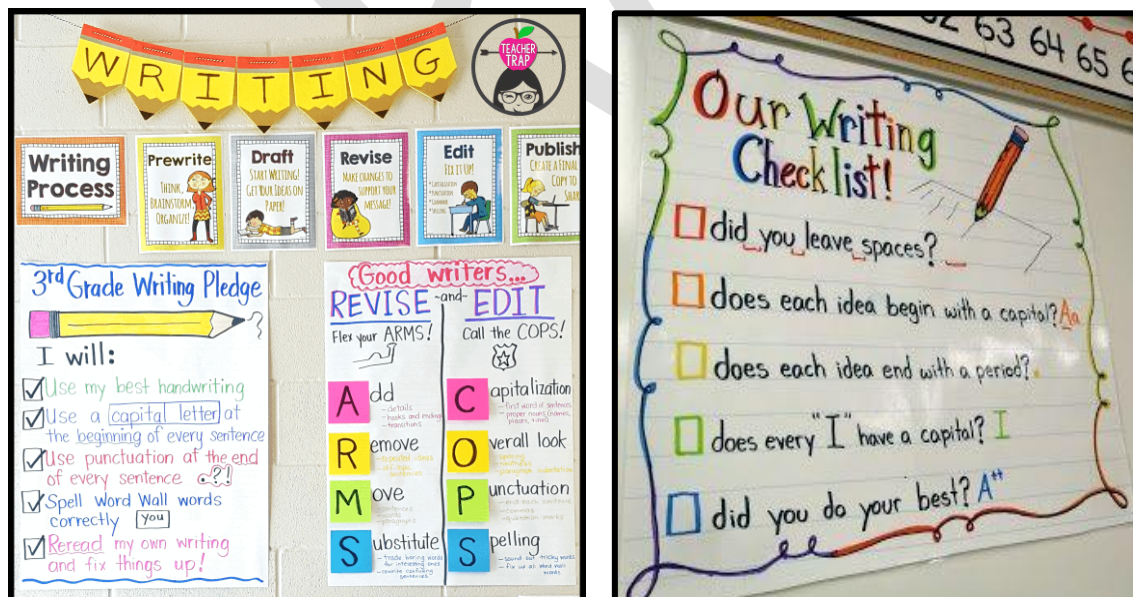 WRITING
TEACHER
TRAP
Writing
Process
Prewrite
THINK,
BRAINSTORM,
ORGANIZE!
Draft
START WRITING!
GET YOUR IDEAS ON
PAPER!
Revise
MAKE CHANGES TO
SUPPORT YOUR
MESSAGE!
Edit
FIX IT UP!
*CAPITALIZATION
*PUNCTUATION
*GRAMMAR
*SPELLING
Publish
CREATE A FINAL
COPY TO
SHAR
3rd Grade Writing Pledge
I will:
Use my best handwriting
Use a capital letter at
the beginning of every sentence
Use punctuation at the end
of every sentence .?!
Spell Word Wall words
correctly you
Reread my own writing
and fix things up!
Good writers...
REVISE -and- EDIT
Flex your ARMS!
Add
- details
- hooks and endings
- transitions
Remove
- repeated ideas
- off-topic
sentences
Move
- sentences
- words
- paragraphs
Substitute
- trade boring words
for interesting ones
- rewrite confusing
sentences
Call the COPS!
Capitalization
- first word of sentences
- proper nouns (names,
places, titles)
Overall look
- spacing
- neatness
- paragraph indentation
Punctuation
- end each sentence
- commas
- quotation marks
Spelling
- sound out tricky words
- fix up all word wall
words
62 63 64 65 6
Our Writing
Checklist!
did you leave spaces?
does each idea begin with a capital? Aa
does each idea end with a period? .
does every "I" have a capital? I
did you do your best? A++